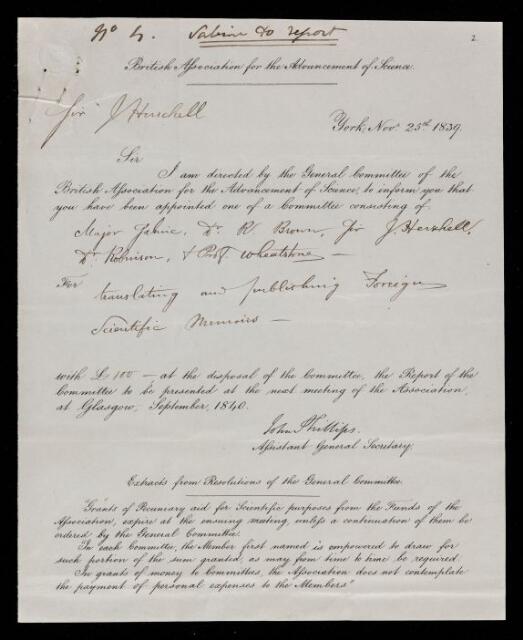 No 4. Sabine to report
2
British Association for the Advancement of Science.
Sir J Herschell
York, Nov. 25th 1839.
Sir
I am directed by the General Committee of the
British Association for the Advancement of Science, to inform you that
you have been appointed one of a Committee consisting of
Major Sabine, Dr R. Brown, Sir J. Herschell,
Dr Robinson, & Prof. Wheatstone —
For
translating and publishing Foreign
Scientific Memoirs —
with £ 100 — at the disposal of the Committee, the Report of the
Committee to be presented at the next meeting of the Association,
at Glasgow, September, 1840.
John Phillips.
Assistant General Secretary.
Extracts from Resolutions of the General Committee.
"Grants of Pecuniary aid for Scientific purposes from the Funds of the
Association, expire at the ensuing meeting, unless a continuation of them be
ordered by the General Committee.
In each Committee, the Member first named is empowered to draw for
such portion of the sum granted, as may from time to time be required.
In grants of money to Committees, the Association does not contemplate
the payment of personal expenses to the Members"